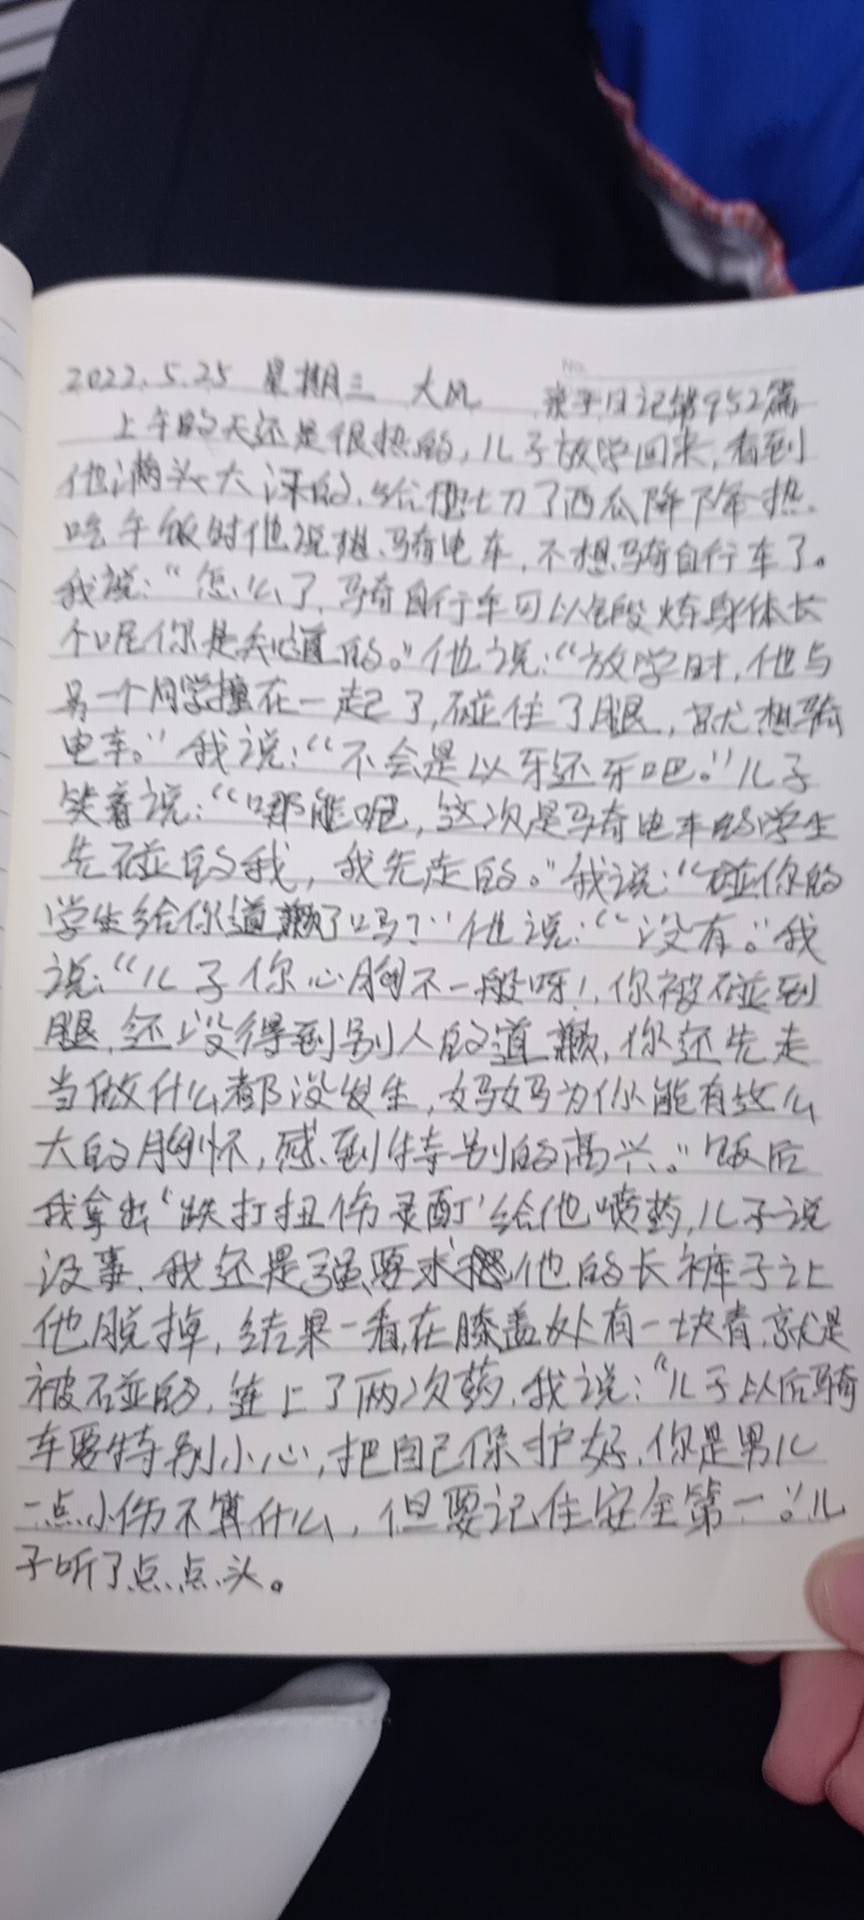 No.
2022.5.25 星期三 大风 亲子日记第952篇
上午的天还是很热的,儿子放学回来,看到
他满头大汗的,给他切了西瓜降降热.
吃午饭时他说想骑电车,不想骑自行车了。
我说:“怎么了,骑自行车可以锻炼身体长
个呢你是知道的。”他说:“放学时,他与
另一个同学撞在一起了,碰住了腿,就想骑
电车。”我说:“不会是以牙还牙吧。”儿子
笑着说:“哪能呢,这次是骑电车的学生
先碰的我,我先走的。”我说:“碰你的
学生给你道歉了吗?”他说:“没有。”我
说:“儿子你心胸不一般呀!,你被碰到
腿,还没得到别人的道歉,你还先走
当做什么都没发生,妈妈为你能有这么
大的胸怀,感到特别的高兴。”饭后
我拿出‘跌打扭伤灵酊’给他喷药,儿子说
没事,我还是强要求把他的长裤子让
他脱掉,结果一看,在膝盖处有一块青,就是
被碰的,连上了两次药,我说:“儿子以后骑
车要特别小心,把自己保护好,你是男儿
一点小伤不算什么,但要记住安全第一。”儿
子听了点点头。